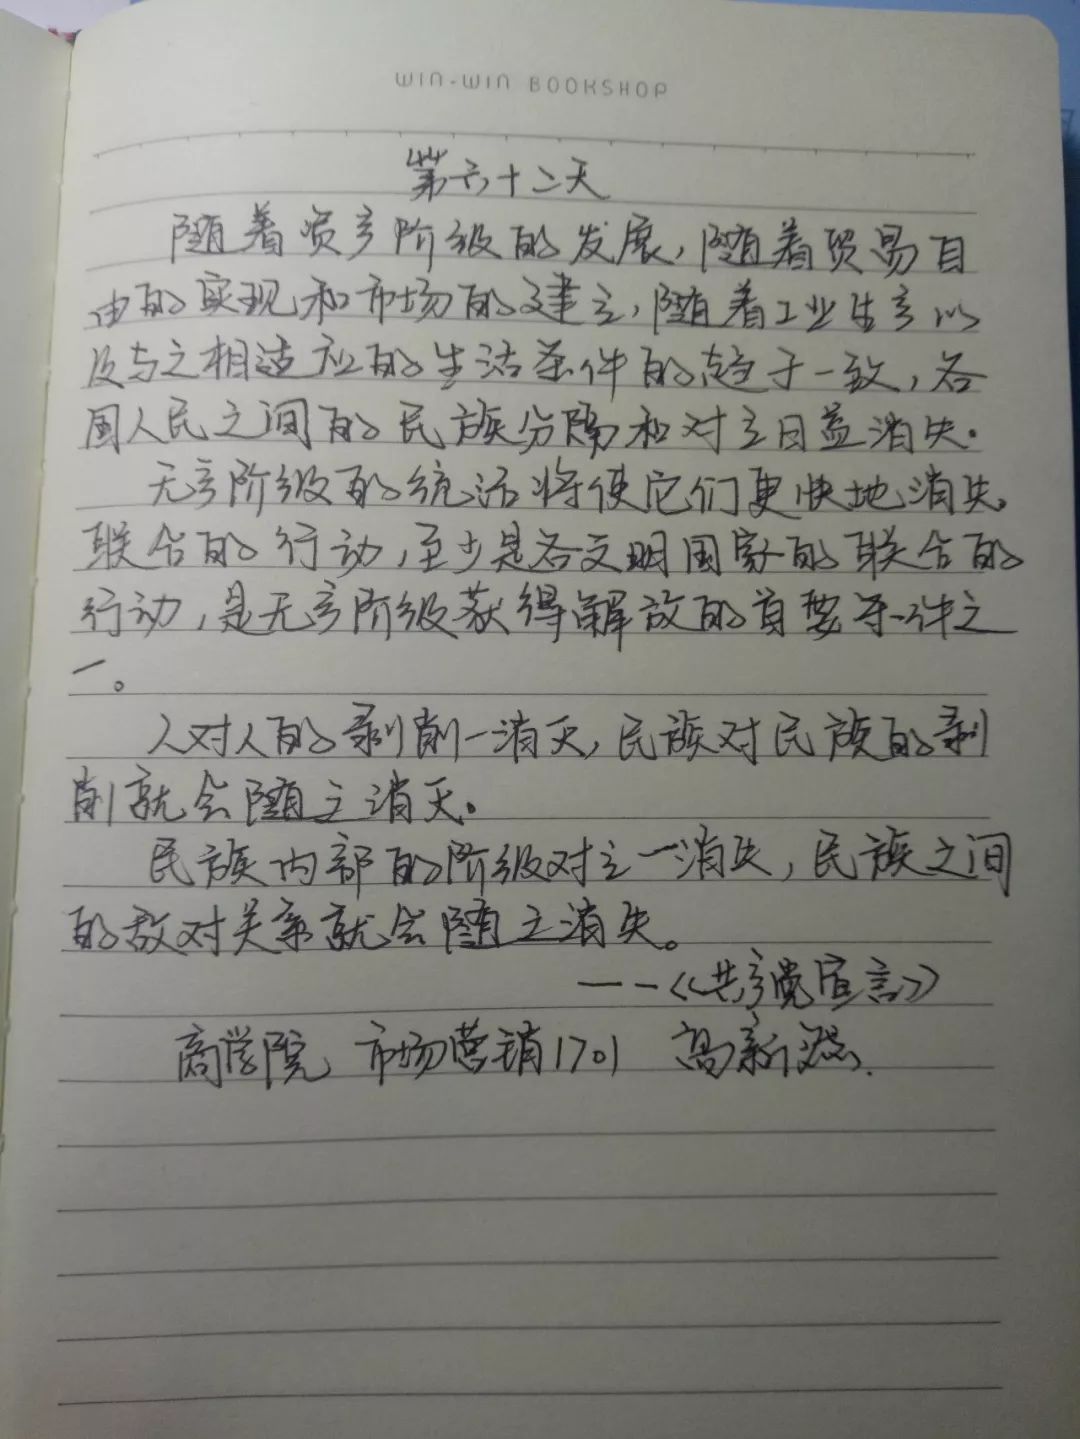 WIN-WIN BOOKSHOP
第六十二天
随着资产阶级的发展,随着贸易自
由的实现和市场的建立,随着工业生产以
及与之相适应的生活条件的趋于一致,各
国人民之间的民族分隔和对立日益消失.
无产阶级的统治将使它们更快地消失.
联合的行动,至少是各文明国家的联合的
行动,是无产阶级获得解放的首要条件之
一。
人对人的剥削一消灭,民族对民族的剥
削就会随之消灭。
民族内部的阶级对立一消失,民族之间
的敌对关系就会随之消失。
——《共产党宣言》
商学院 市场营销1701 高新